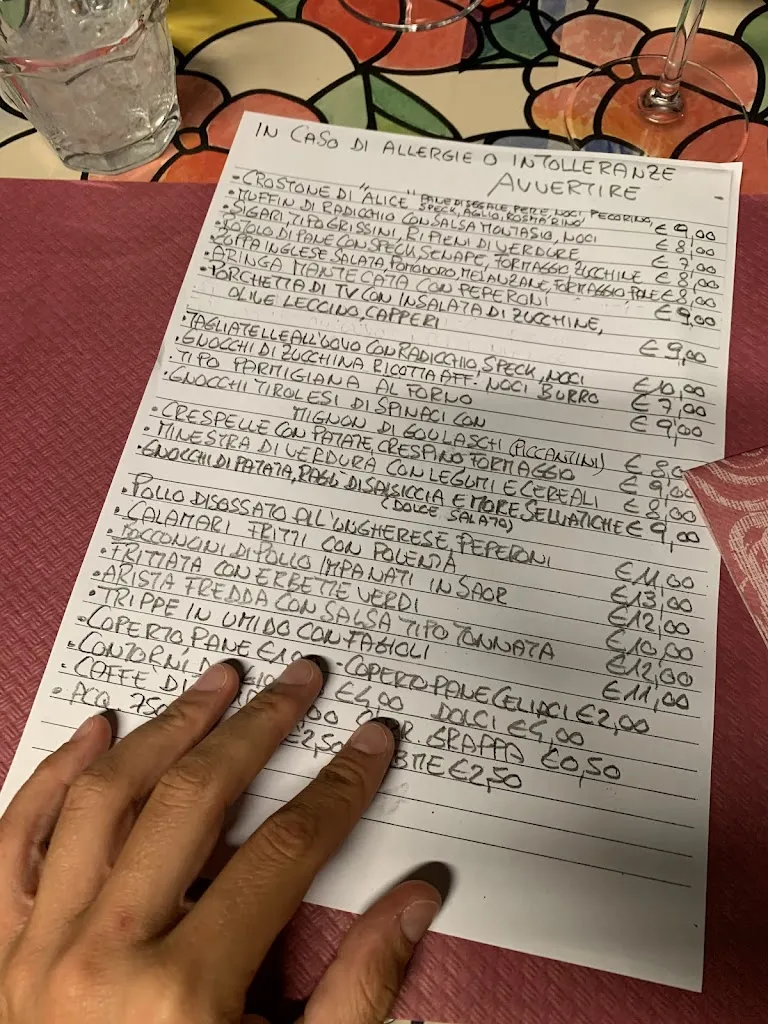 IN CASO DI ALLERGIE O INTOLLERANZE
AVVERTIRE
• CROSTONE DI "ALICE" PANE DI SEGALE, PERE, NOCI, PECORINO, € 9,00
SPECK, AGLIO, ROSMARINO
• MUFFIN DI RADICCHIO CON SALSA MONTASIO, NOCI € 8,00
• SIGARI, TIPO GRISSINI, RIPIENI DI VERDURE € 7,00
• ROTOLO DI PANE CON SPECK, SENAPE, FORMAGGIO ZUCCHINE € 8,00
• COPPA INGLESE SALATA POMODORO, MELANZANE, FORMAGGIO PANE € 8,00
• ARINGA MANTECATA CON PEPERONI € 9,00
• PORCHETTA DI TV CON INSALATA DI ZUCCHINE,
OLIVE LECCINO, CAPPERI € 9,00
• TAGLIATELLE ALL'UOVO CON RADICCHIO, SPECK, NOCI € 10,00
• GNOCCHI DI ZUCCHINA RICOTTA AFF. NOCI BURRO € 7,00
• TIPO PARMIGIANA AL FORNO € 9,00
• GNOCCHI TIROLESI DI SPINACI CON
MIGNON DI GOULASCH (PICCANTINI) € 8,00
• CRESPELLE CON PATATE, CRESPINO FORMAGGIO € 9,00
• MINESTRA DI VERDURA CON LEGUMI E CEREALI € 8,00
• GNOCCHI DI PATATA, RAGÙ DI SALSICCIA E MORE SELVATICHE € 9,00
(DOLCE SALATO)
• POLLO DISOSSATO ALL'UNGHERESE, PEPERONI € 11,00
• CALAMARI FRITTI CON POLENTA € 13,00
• BOCCONCINI DI POLLO IMPANATI IN SAOR € 12,00
• FRITTATA CON ERBETTE VERDI € 10,00
• ARISTA FREDDA CON SALSA TIPO TONNATA € 12,00
• TRIPPE IN UMIDO CON FAGIOLI € 11,00
• COPERTO PANE € - COPERTO PANE CELIACI € 2,00
• CONTORNI € 4,00 DOLCI € 4,00
• CAFFE GRAPPA € 0,50
• ACQ. 750 € 2,50 € 2,50